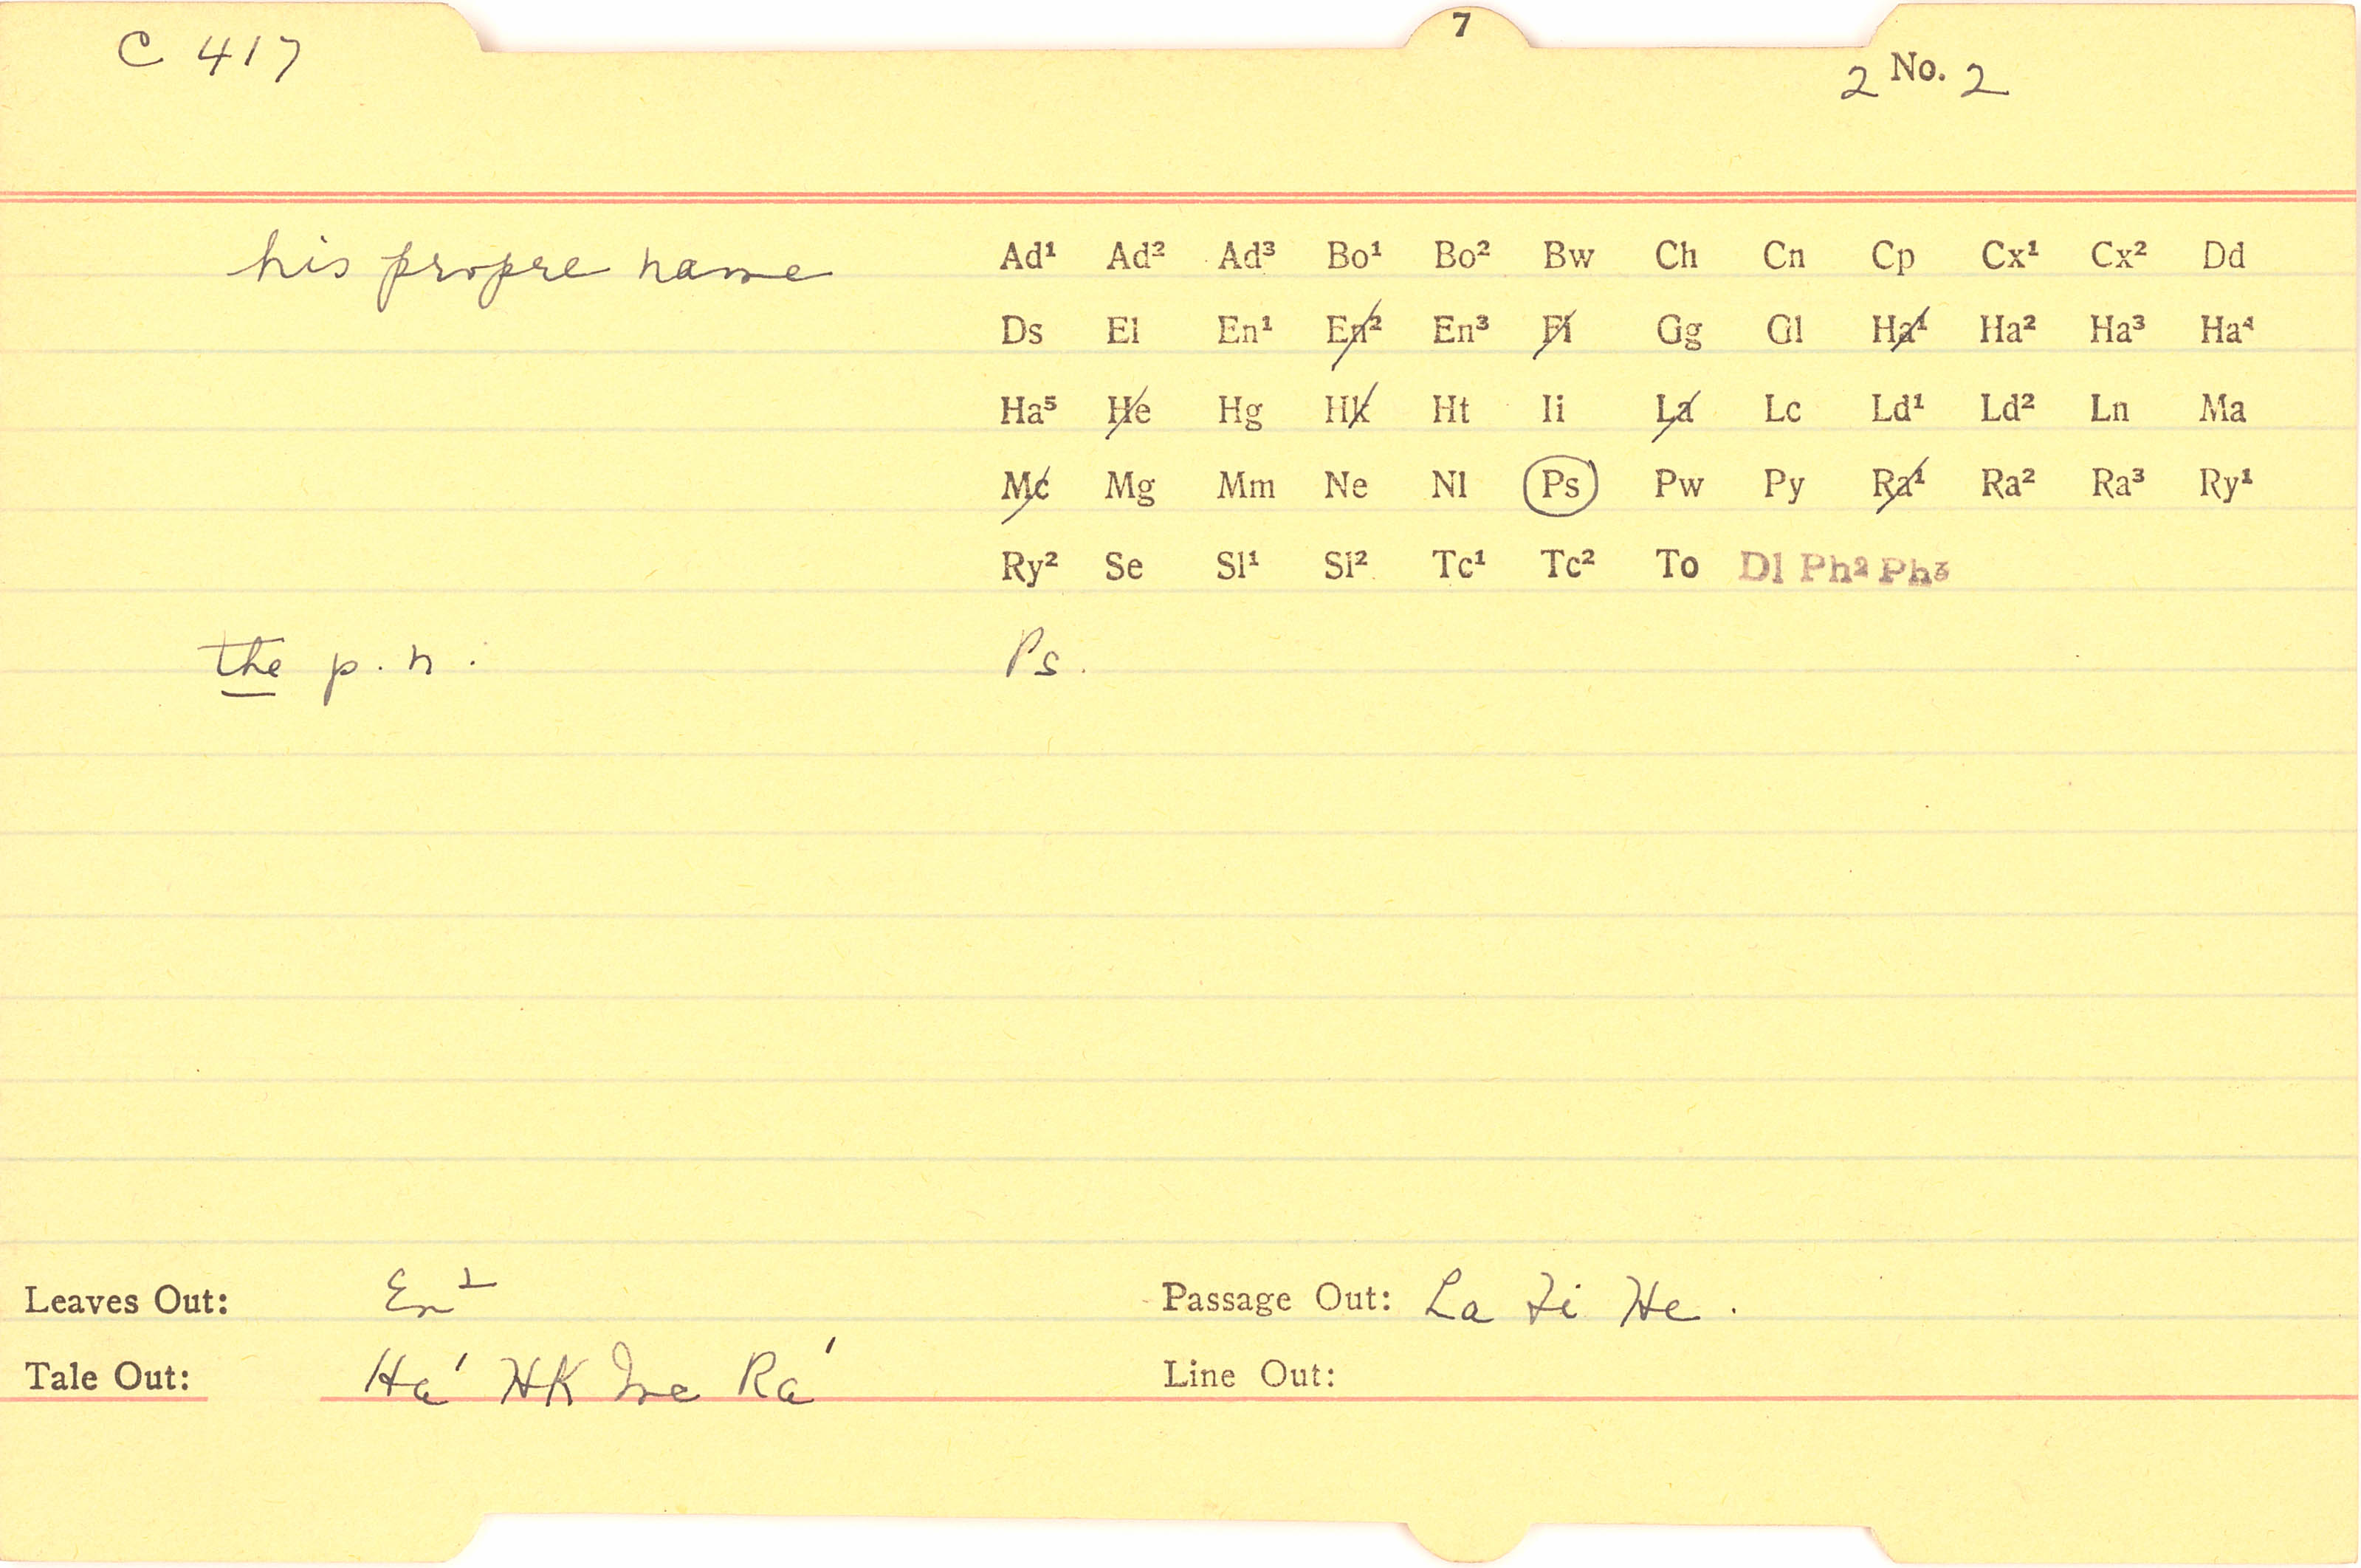 7
C 417
2 No. 2
his propre name
Ad¹ Ad² Ad³ Bo¹ Bo² Bw Ch Cn Cp Cx¹ Cx² Dd
Ds El En¹ En² En³ Fi Gg Gl Ha¹ Ha² Ha³ Ha⁴
Ha⁵ He Hg Hk Ht Ii La Lc Ld¹ Ld² Ln Ma
Mc Mg Mm Ne Nl Ps Pw Py Ra¹ Ra² Ra³ Ry¹
Ry² Se Sl¹ Sl² Tc¹ Tc² To Dl Ph² Ph³
the p. n. Ps.
Leaves Out: En² Passage Out: La Fi He.
Tale Out: Ha¹ HK Mc Ra¹ Line Out: